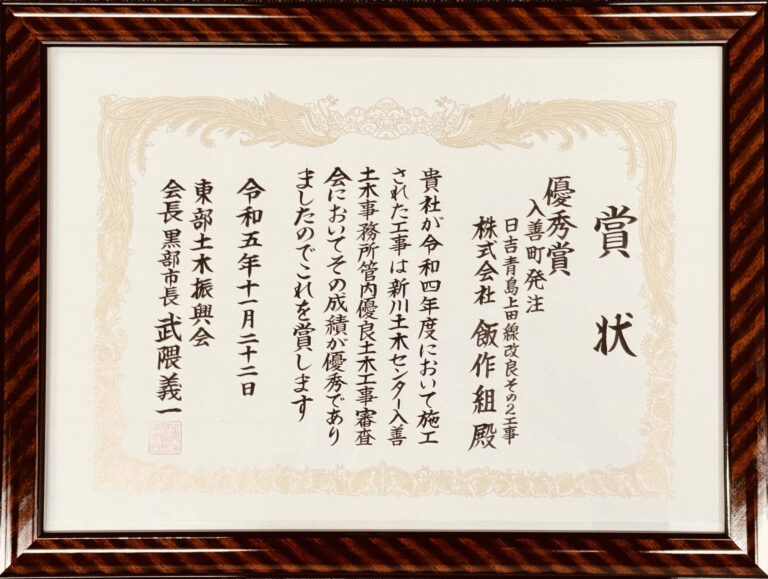 賞状
優秀賞
入善町発注
日吉青島上田線改良その2工事
株式会社 飯作組 殿
貴社が令和四年度において施工
された工事は新川土木センター入善
土木事務所管内優良土木工事審査
会においてその成績が優秀であり
ましたのでこれを賞します
令和五年十一月二十二日
東部土木振興会
会長 黒部市長 武隈義一